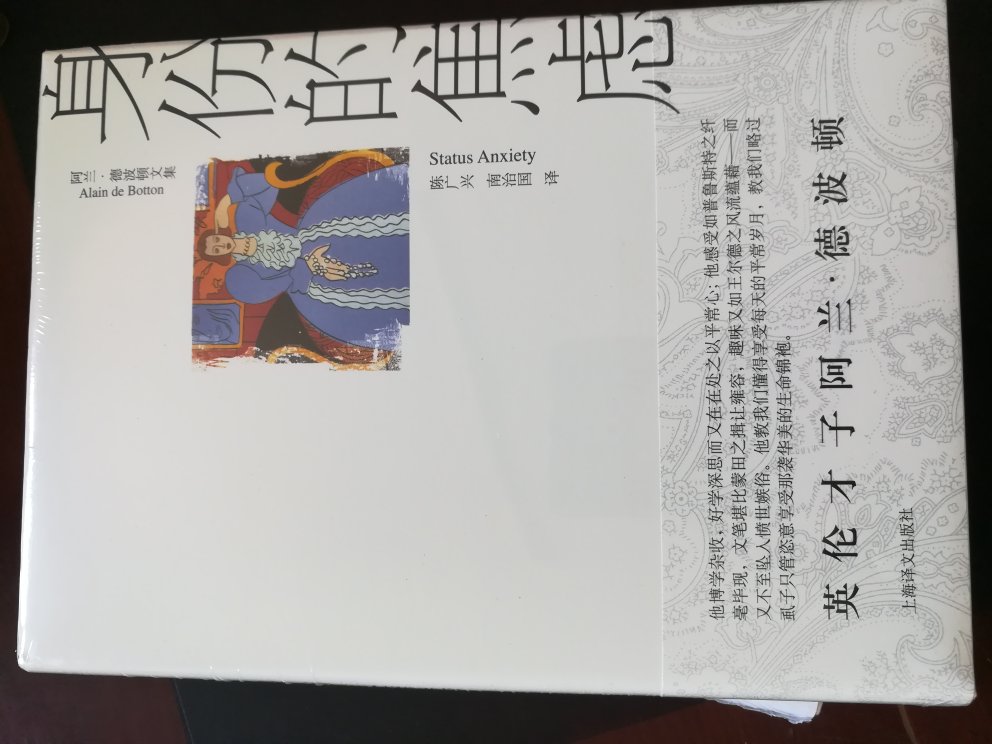 身份的焦虑
阿兰·德波顿文集
Alain de Botton
Status Anxiety
陈广兴 南治国 译
他博学杂收，好学深思而又在在处之以平常心；他感受如普鲁斯特之纤
毫毕现，文笔堪比蒙田之揖让雍容，趣味又如王尔德之风流蕴藉——而
又不至坠入愤世嫉俗。他教我们懂得享受每天的平常岁月，教我们略过
虱子只管恣意享受那袭华美的生命锦袍。
英伦才子阿兰·德波顿
上海译文出版社